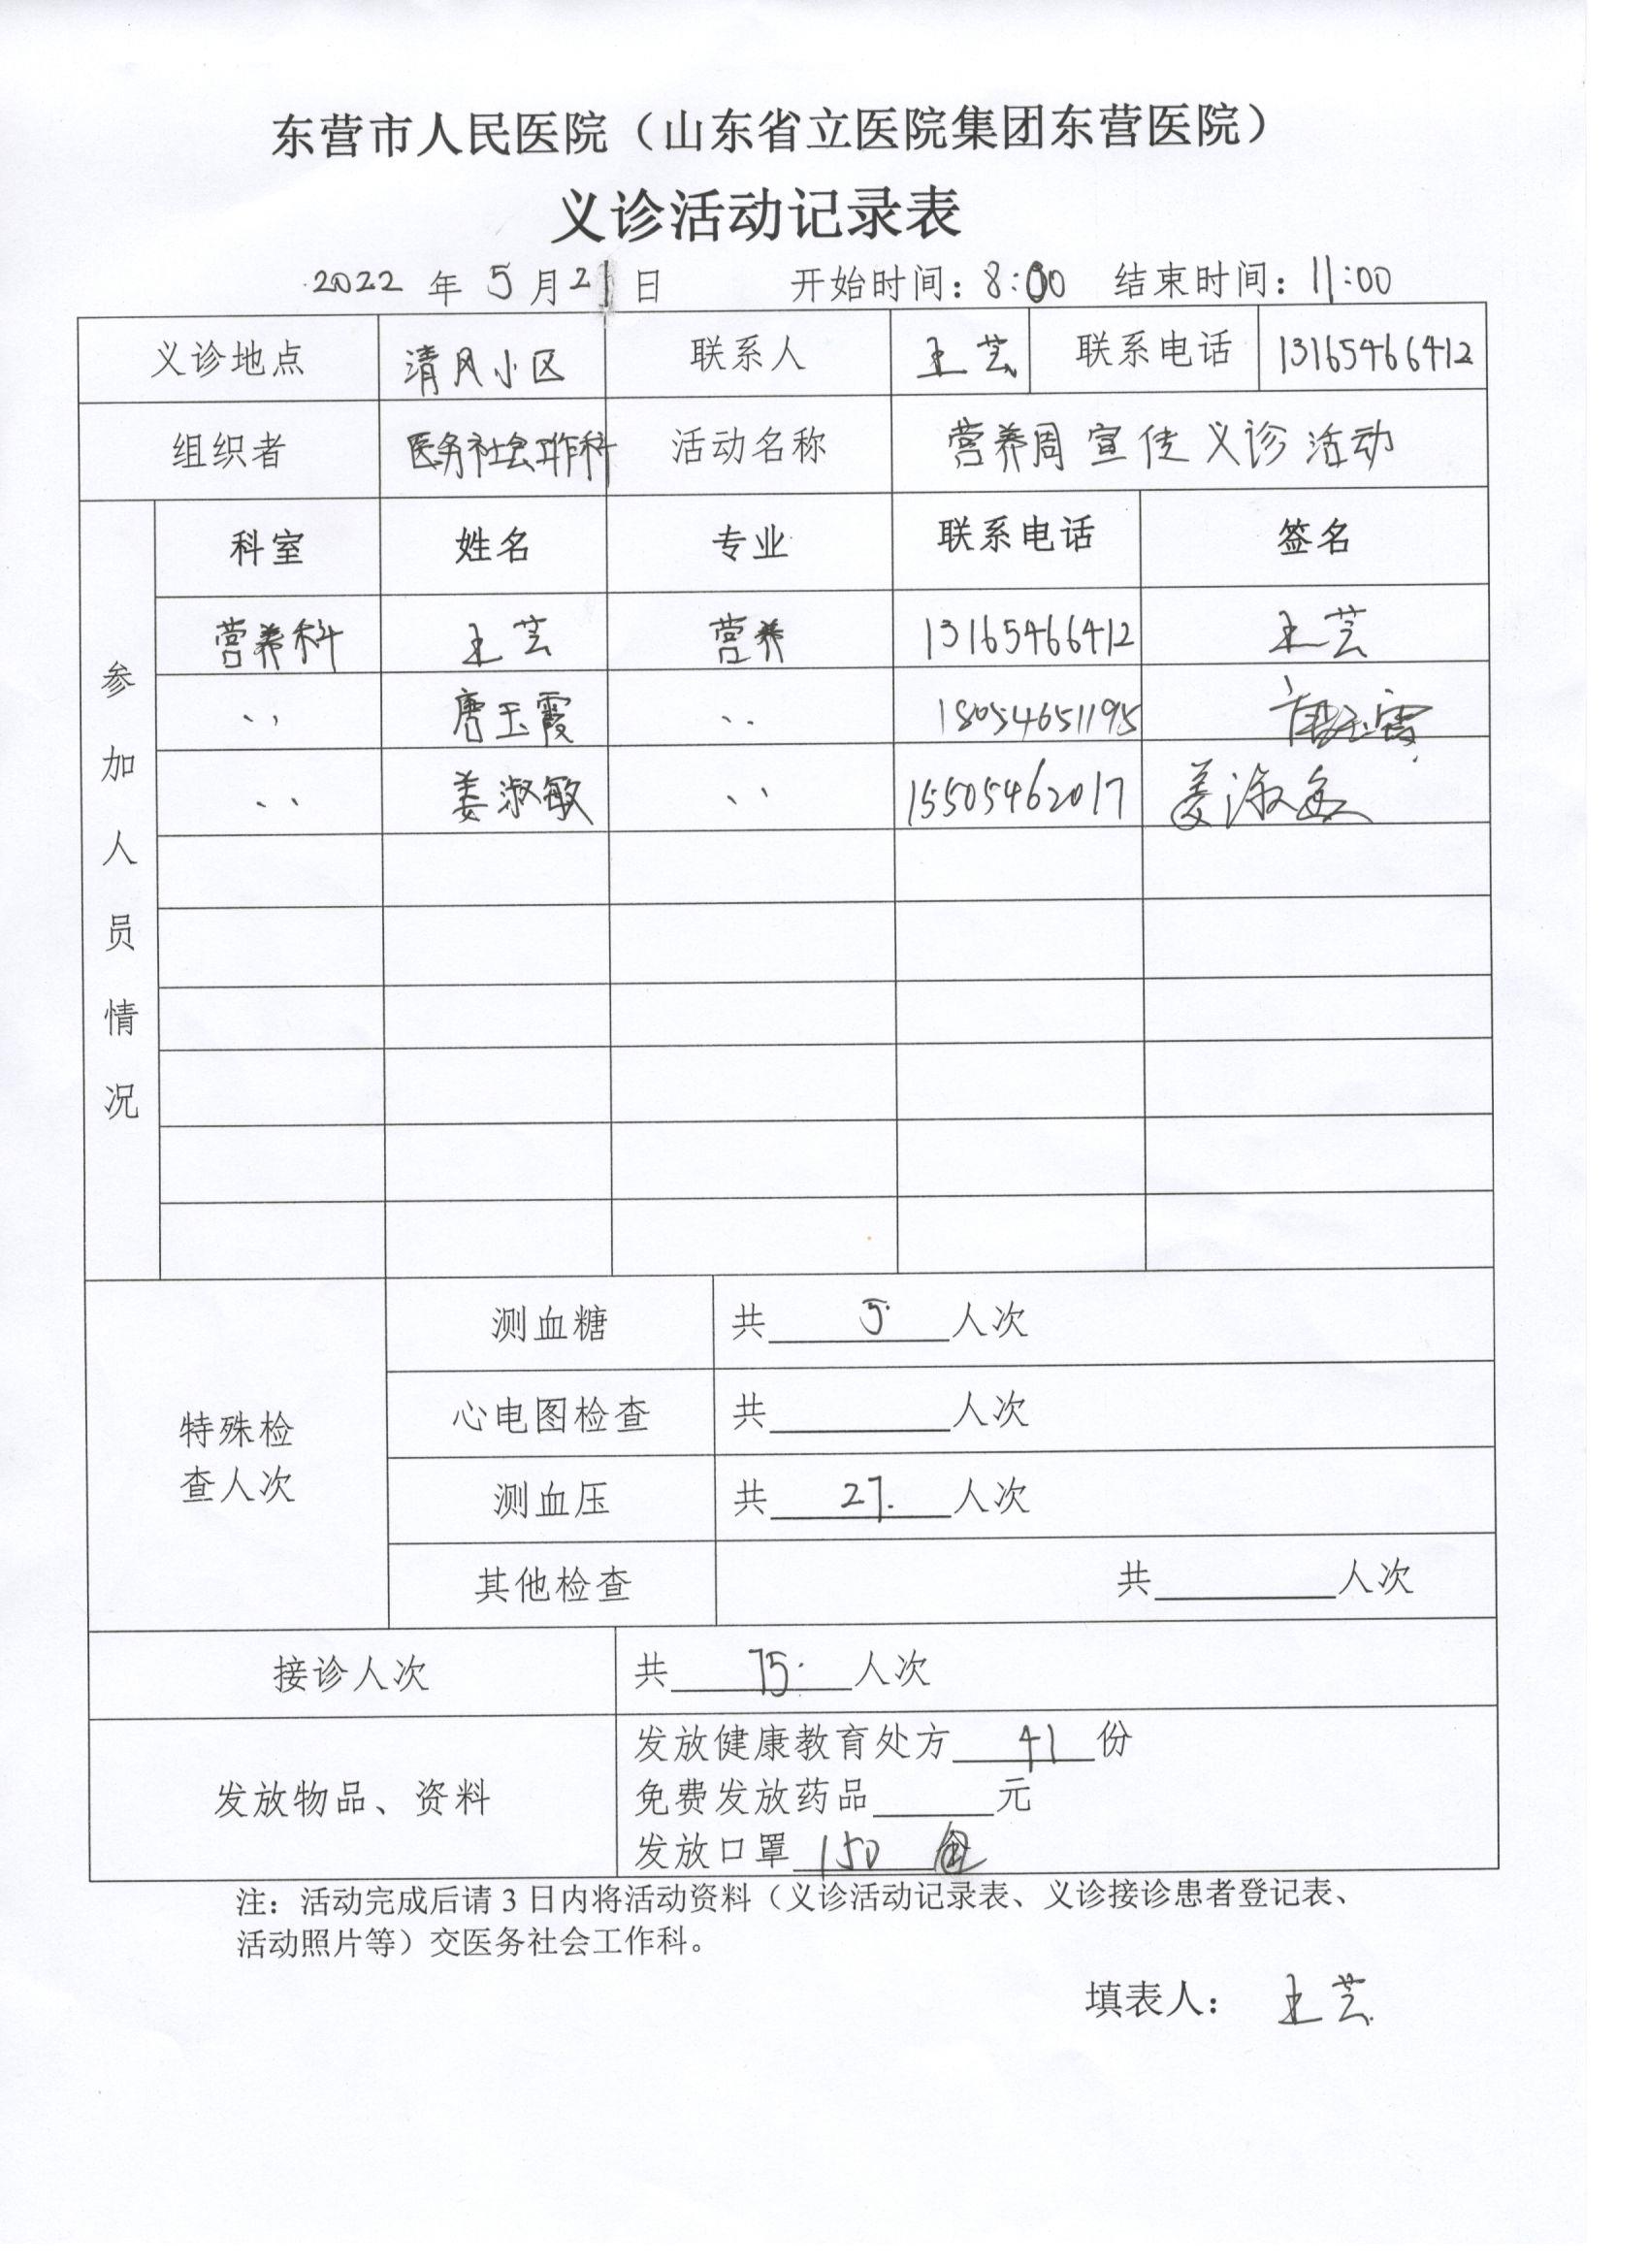 东营市人民医院（山东省立医院集团东营医院）
义诊活动记录表
2022 年 5 月 21 日 开始时间：8:00 结束时间：11:00
义诊地点 清风小区 联系人 王芸 联系电话 13165466412
组织者 医务社会工作科 活动名称 营养周宣传义诊活动
参加人员情况
科室 姓名 专业 联系电话 签名
营养科 王芸 营养 13165466412 王芸
〃 唐玉霞 〃 18054651195 唐玉霞
〃 姜淑敏 〃 15505462017 姜淑敏
特殊检查人次
测血糖 共 5 人次
心电图检查 共______人次
测血压 共 27. 人次
其他检查 共______人次
接诊人次 共 75 人次
发放物品、资料
发放健康教育处方 41 份
免费发放药品______元
发放口罩 150
注：活动完成后请 3 日内将活动资料（义诊活动记录表、义诊接诊患者登记表、
活动照片等）交医务社会工作科。
填表人： 王芸